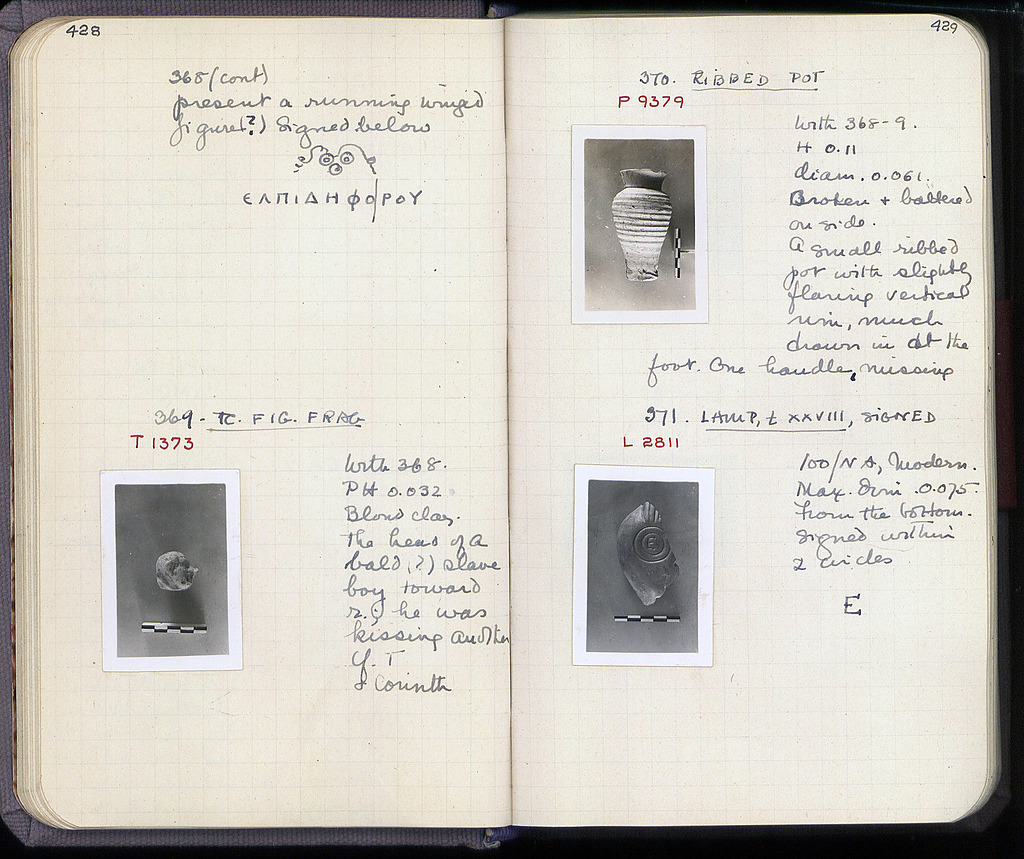 428
368 (cont)
present a running winged
figure(?) Signed below
ΕΛΠΙΔΗΦΟΡΟΥ
369 - TC. FIG. FRAG
T 1373
With 368.
PH 0.032
Blond clay.
The head of a
bald (?) slave
boy toward
r.; he was
kissing another
Cf. T
& Corinth
429
370. RIBBED POT
P 9379
With 368-9.
H 0.11
diam. 0.061.
Broken + battered
on side.
A small ribbed
pot with slightly
flaring vertical
rim, much
drawn in at the
foot. One handle, missing
371. LAMP, t XXVIII, SIGNED
L 2811
100/ΝΔ, Modern.
Max. Dim. 0.075.
From the bottom.
Signed within
2 circles
E